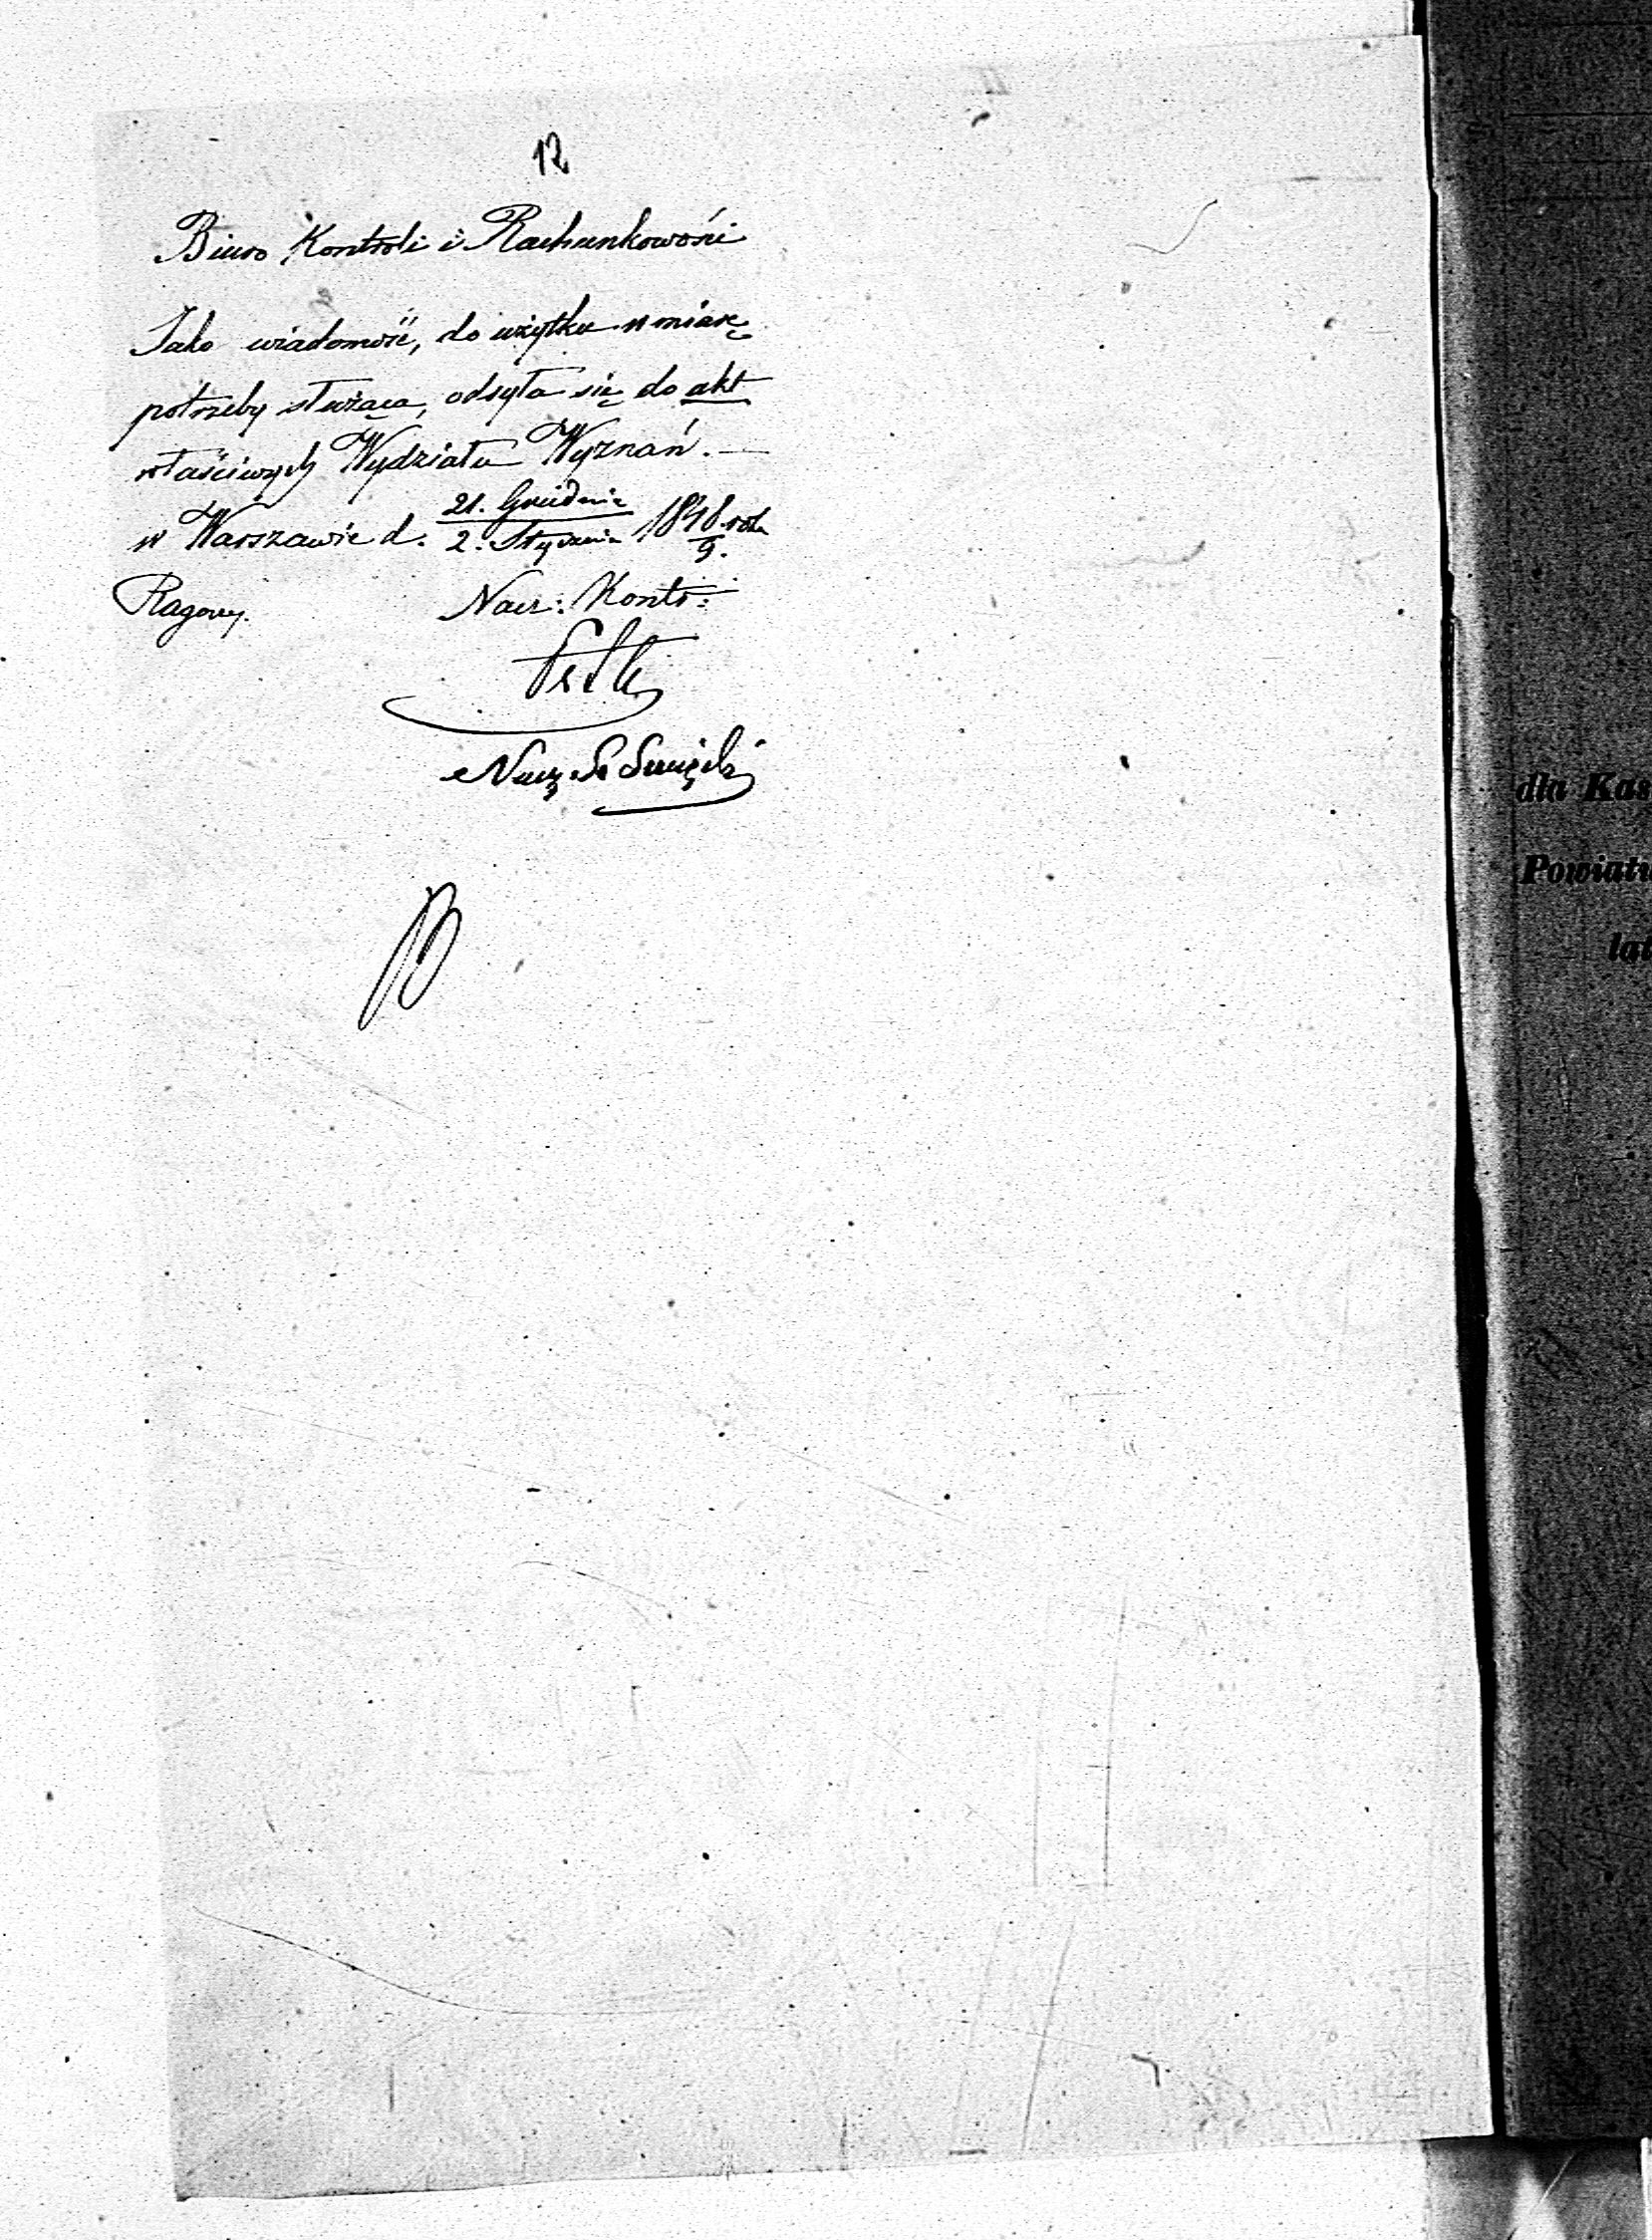 12
Biuro Kontroli i Rachunkowości
Jako wiadomość, do użytku w miarę
potrzeby służąca, odsyła się do akt
właściwych Wydziału Wyznań. —
w Warszawie d. 21. Grudnia / 2. Stycznia 1848/9. roku
Nacz: Kontr:
Nacz
dla Kas
Powiatu